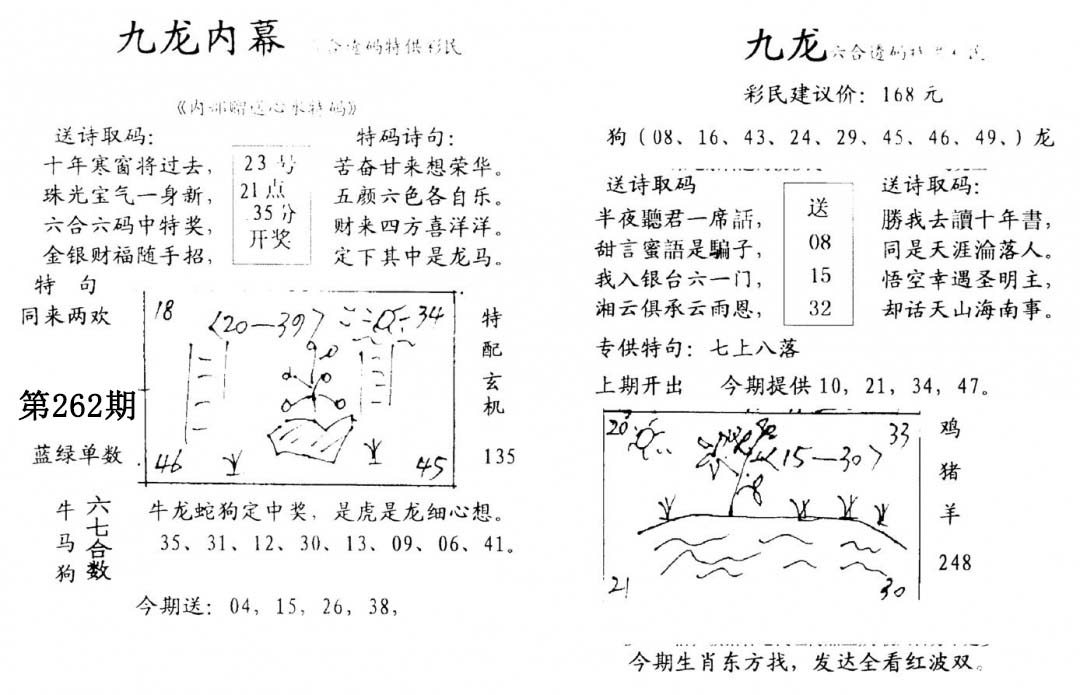 九龙内幕
合遗码特供彩民
《内部赠送心水特码》
送诗取码：
十年寒窗将过去，
珠光宝气一身新，
六合六码中特奖，
金银财福随手招，
23号
21点
35分
开奖
特码诗句：
苦奋甘来想荣华。
五颜六色各自乐。
财来四方喜洋洋。
定下其中是龙马。
特 句
同来两欢
第262期
蓝绿单数
18
<20—39>
34
46
45
特
配
玄
机
135
牛
马
狗
六
七
合
数
牛龙蛇狗定中奖，是虎是龙细心想。
35、31、12、30、13、09、06、41。
今期送：04，15，26，38，
九龙六合遗码特
彩民建议价：168元
狗（08、16、43、24、29、45、46、49、）龙
送诗取码
半夜聽君一席話，
甜言蜜語是騙子，
我入银台六一门，
湘云俱承云雨恩，
送
08
15
32
送诗取码：
勝我去讀十年書，
同是天涯淪落人。
悟空幸遇圣明主，
却话天山海南事。
专供特句：七上八落
上期开出 今期提供10，21，34，47。
20
33
<15—30>
21
30
鸡
猪
羊
248
今期生肖东方找，发达全看红波双。